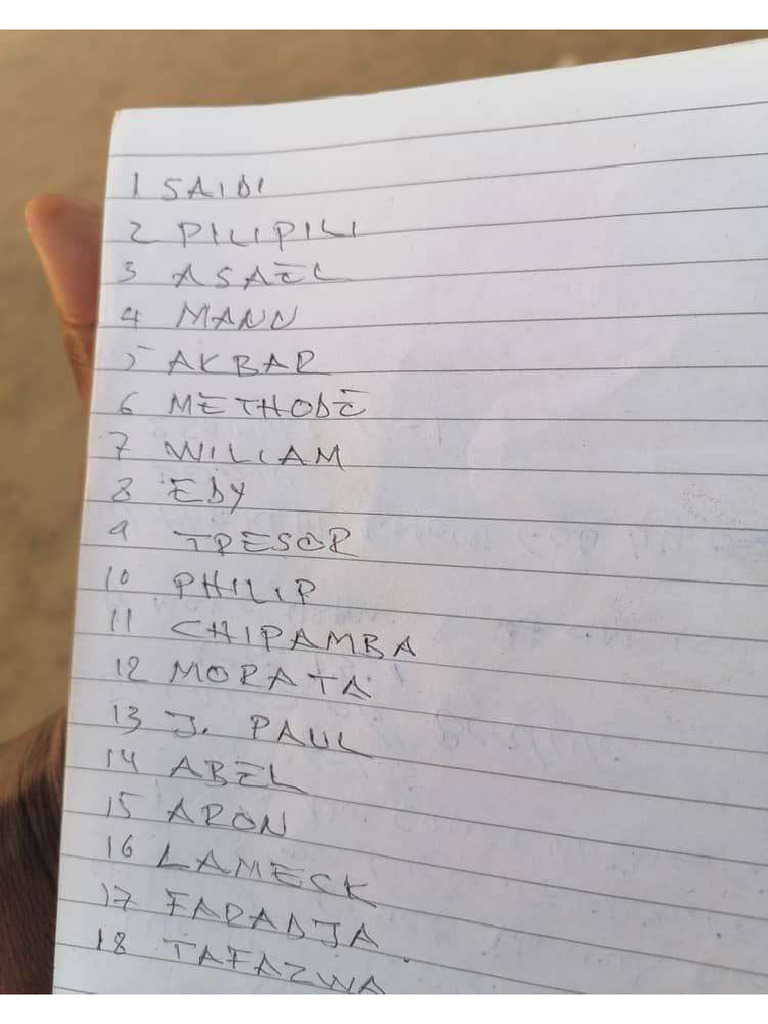 1 SAIDI
2 PILIPILI
3 ASAËL
4 MANN
5 AKBAR
6 METHODE
7 WILIAM
8 EDY
9 TRESOR
10 PHILIP
11 CHIPAMBA
12 MORATA
13 J. PAUL
14 ABEL
15 ARON
16 LAMECK
17 FARADJA
18 TAFAZWA